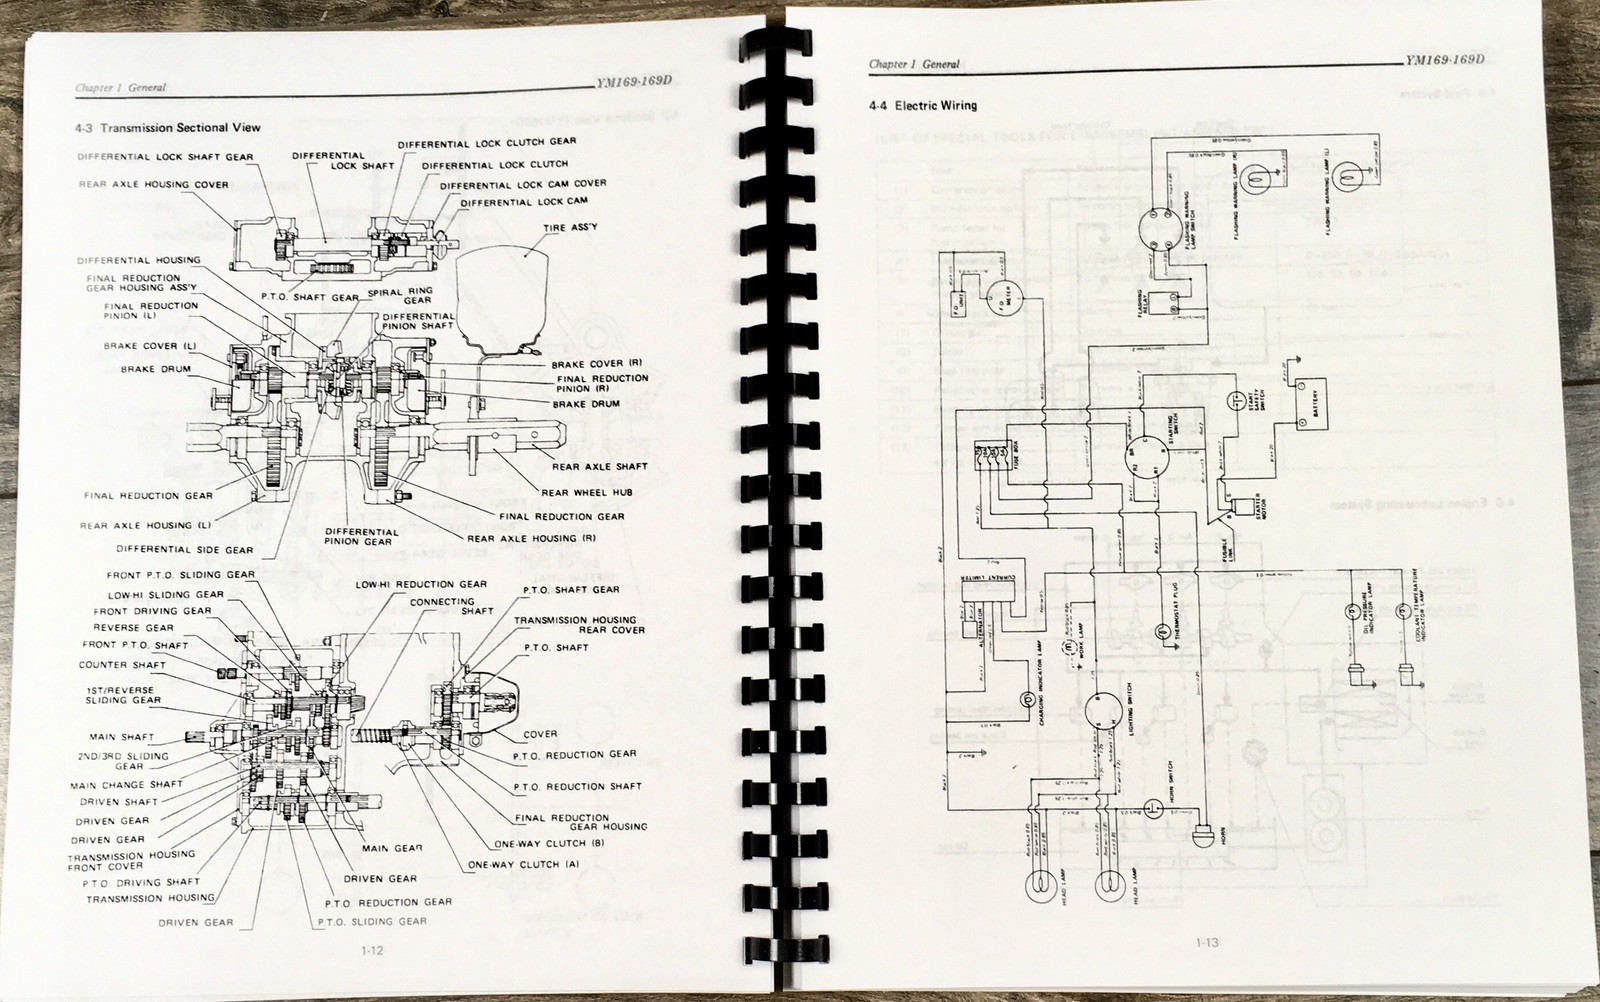 Chapter 1 General
YM169·169D
4-3 Transmission Sectional View
DIFFERENTIAL LOCK CLUTCH GEAR
DIFFERENTIAL LOCK SHAFT GEAR
DIFFERENTIAL
LOCK SHAFT
DIFFERENTIAL LOCK CLUTCH
REAR AXLE HOUSING COVER
DIFFERENTIAL LOCK CAM COVER
DIFFERENTIAL LOCK CAM
TIRE ASS'Y
DIFFERENTIAL HOUSING
FINAL REDUCTION
GEAR HOUSING ASS'Y
P.T.O. SHAFT GEAR
SPIRAL RING
GEAR
FINAL REDUCTION
PINION (L)
DIFFERENTIAL
PINION SHAFT
BRAKE COVER (L)
BRAKE DRUM
BRAKE COVER (R)
FINAL REDUCTION
PINION (R)
BRAKE DRUM
REAR AXLE SHAFT
REAR WHEEL HUB
FINAL REDUCTION GEAR
FINAL REDUCTION GEAR
REAR AXLE HOUSING (L)
DIFFERENTIAL
PINION GEAR
REAR AXLE HOUSING (R)
DIFFERENTIAL SIDE GEAR
FRONT P.T.O. SLIDING GEAR
LOW-HI REDUCTION GEAR
LOW-HI SLIDING GEAR
CONNECTING
SHAFT
P.T.O. SHAFT GEAR
FRONT DRIVING GEAR
TRANSMISSION HOUSING
REAR COVER
REVERSE GEAR
FRONT P.T.O. SHAFT
P.T.O. SHAFT
COUNTER SHAFT
1ST/REVERSE
SLIDING GEAR
MAIN SHAFT
COVER
2ND/3RD SLIDING
GEAR
P.T.O. REDUCTION GEAR
MAIN CHANGE SHAFT
P.T.O. REDUCTION SHAFT
DRIVEN SHAFT
DRIVEN GEAR
FINAL REDUCTION
GEAR HOUSING
DRIVEN GEAR
MAIN GEAR
ONE-WAY CLUTCH (B)
TRANSMISSION HOUSING
FRONT COVER
ONE-WAY CLUTCH (A)
P.T.O. DRIVING SHAFT
DRIVEN GEAR
TRANSMISSION HOUSING
P.T.O. REDUCTION GEAR
DRIVEN GEAR
P.T.O. SLIDING GEAR
1-12
Chapter 1 General
YM169·169D
4-4 Electric Wiring
FLASHING WARNING LAMP (R)
FLASHING WARNING LAMP (L)
FLASHING WARNING
LAMP SWITCH
FLASHING
RELAY
F.O. UNIT
F.O.
METER
START
SAFETY
SWITCH
BATTERY
FUSE BOX
STARTING
SWITCH
STARTER
MOTOR
FUSIBLE
LINK
CURRENT LIMITER
ALTERNATOR
WORK LAMP
THERMOSTAT PLUG
OIL PRESSURE
INDICATOR LAMP
COOLANT TEMPERATURE
INDICATOR LAMP
CHARGING INDICATOR LAMP
LIGHTING SWITCH
HORN SWITCH
HORN
HEAD LAMP
HEAD LAMP
1-13